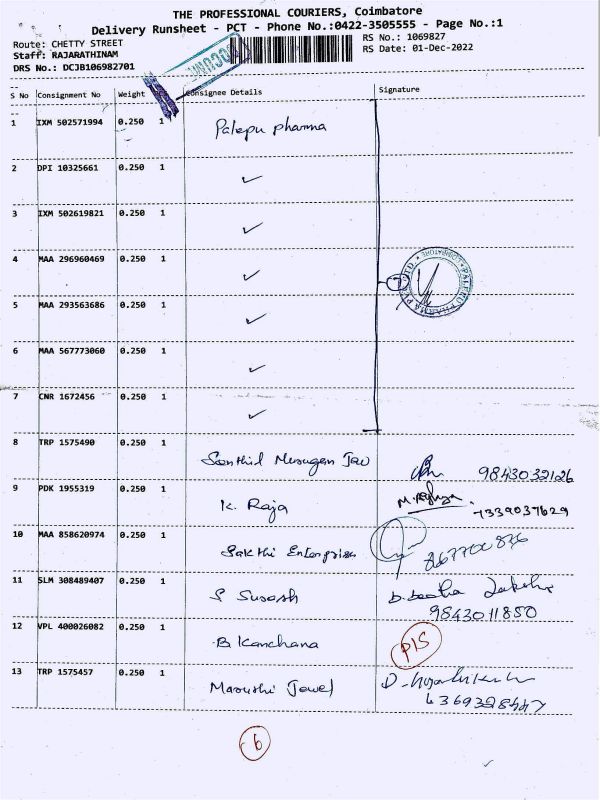 THE PROFESSIONAL COURIERS, Coimbatore
Delivery Runsheet - PCT - Phone No.:0422-3505555 - Page No.:1
Route: CHETTY STREET
RS No.: 1069827
Staff: RAJARATHINAM
RS Date: 01-Dec-2022
DRS No.: DCJB106982701
S No Consignment No Weight Consignee Details Signature
1 IXM 502571994 0.250 1 Palepu pharma
2 DPI 10325661 0.250 1 ✓
3 IXM 502619821 0.250 1 ✓
4 MAA 296960469 0.250 1 ✓
7
PALEPU PHARMA COIMBATORE
5 MAA 293563686 0.250 1 ✓
6 MAA 567773060 0.250 1 ✓
7 CNR 1672456 0.250 1 ✓
8 TRP 1575490 0.250 1 9843032126
9 PDK 1955319 0.250 1 K. Raja 7339037629
10 MAA 858620974 0.250 1 Sakthi Enterprises
11 SLM 308489407 0.250 1 S Suresh
9843011850
12 VPL 400026082 0.250 1 B Kanchana PIS
13 TRP 1575457 0.250 1 Jewel
6